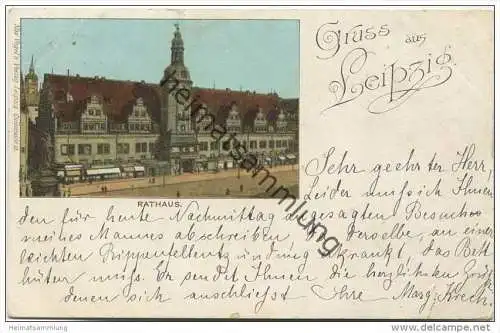 Gruss aus
Leipzig.
RATHAUS.
Sehr geehrter Herr,
Leider muss ich Ihnen
den für heute Nachmittag angesagten Besuch
meines Mannes abschreiben, derselbe, an einer
leichten Grippenfellentzündung erkrankt, das Bett
hüten muss. Er sendet Ihnen die herzlichsten Grüße
denen sich anschliesst Ihre Marg.
heimatsammlung.de
heimatsammlung.de